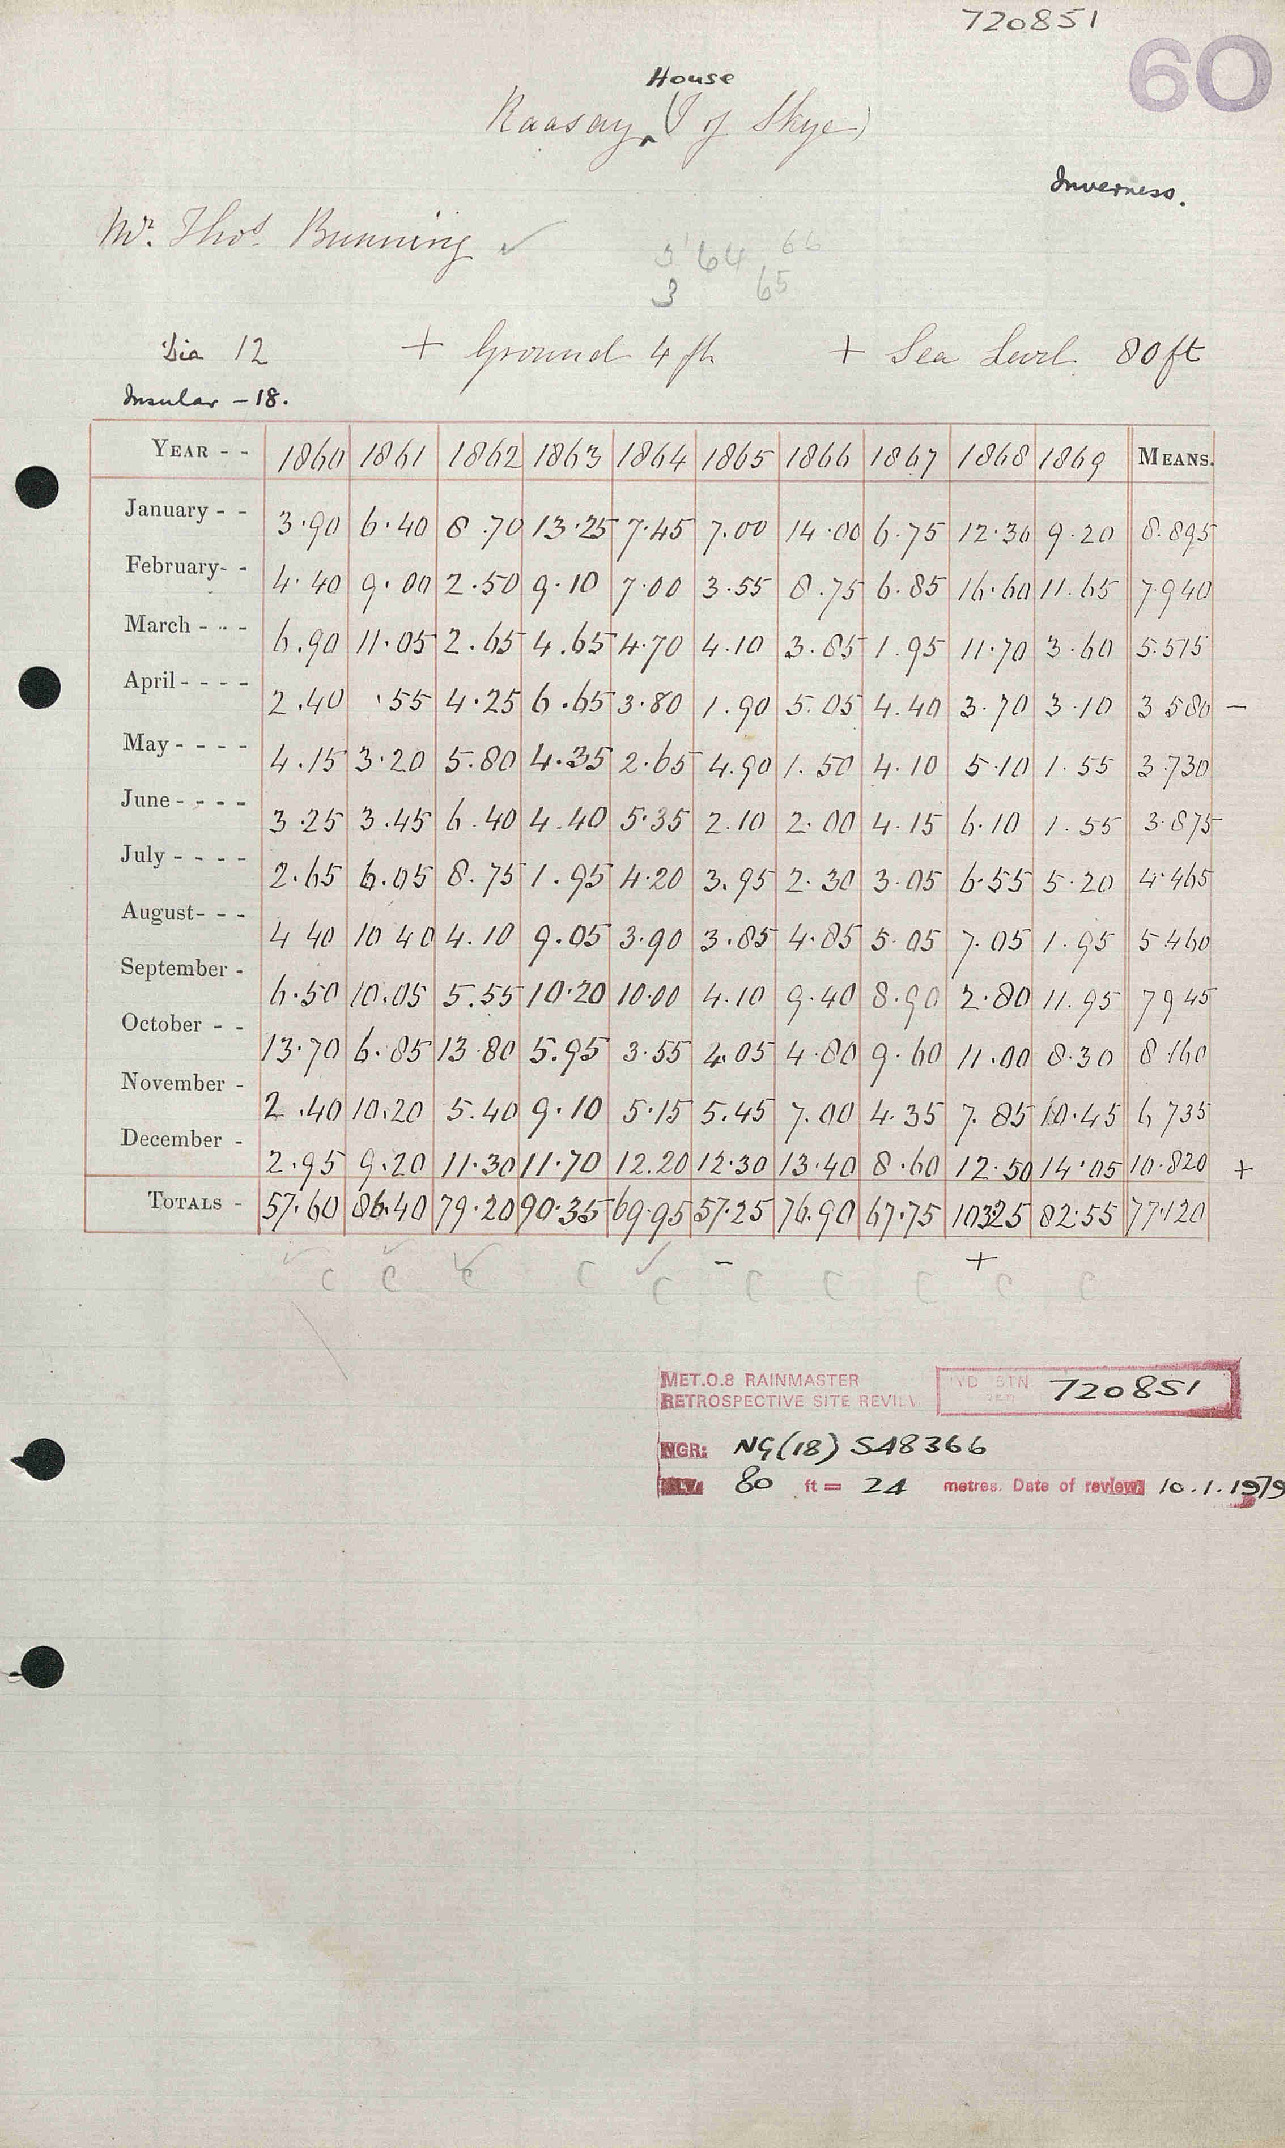 720851
60
House
Raasay (I of Skye)
Inverness.
Mr. Thos. Bunning
3 64 66
3 65
Dia 12 + Ground 4 ft + Sea Level 80 ft
Insular - 18.
YEAR - - 1860 1861 1862 1863 1864 1865 1866 1867 1868 1869 MEANS.
January - - 3.90 6.40 8.70 13.25 7.45 7.00 14.00 6.75 12.30 9.20 8.895
February- - 4.40 9.00 2.50 9.10 7.00 3.55 8.75 6.85 16.60 11.65 7940
March - - - 6.90 11.05 2.65 4.65 4.70 4.10 3.85 1.95 11.70 3.60 5.515
April - - - - 2.40 .55 4.25 6.65 3.80 1.90 5.05 4.40 3.70 3.10 3 580 -
May - - - - 4.15 3.20 5.80 4.35 2.65 4.90 1.50 4.10 5.10 1.55 3.730
June - - - - 3.25 3.45 6.40 4.40 5.35 2.10 2.00 4.15 6.10 1.55 3.875
July - - - - 2.65 6.05 8.75 1.95 4.20 3.95 2.30 3.05 6.55 5.20 4.465
August- - - 4 40 10 40 4.10 9.05 3.90 3.85 4.85 5.05 7.05 1.95 5 460
September - 6.50 10.05 5.55 10.20 10.00 4.10 9.40 8.90 2.80 11.95 7945
October - - 13.70 6.85 13.80 5.95 3.55 4.05 4.80 9.60 11.00 8.30 8 160
November - 2.40 10.20 5.40 9.10 5.15 5.45 7.00 4.35 7.85 10.45 6 735
December - 2.95 9.20 11.30 11.70 12.20 12.30 13.40 8.60 12.50 14.05 10.820 +
TOTALS - 57.60 86.40 79.20 90.35 69.95 57.25 76.90 67.75 103.25 82.55 77.120
- +
C C C C C C C C C C
MET.O.8 RAINMASTER
RETROSPECTIVE SITE REVIEW 720851
NGR: NG(18) 548366
80 ft = 24 metres. Date of review: 10.1.1979